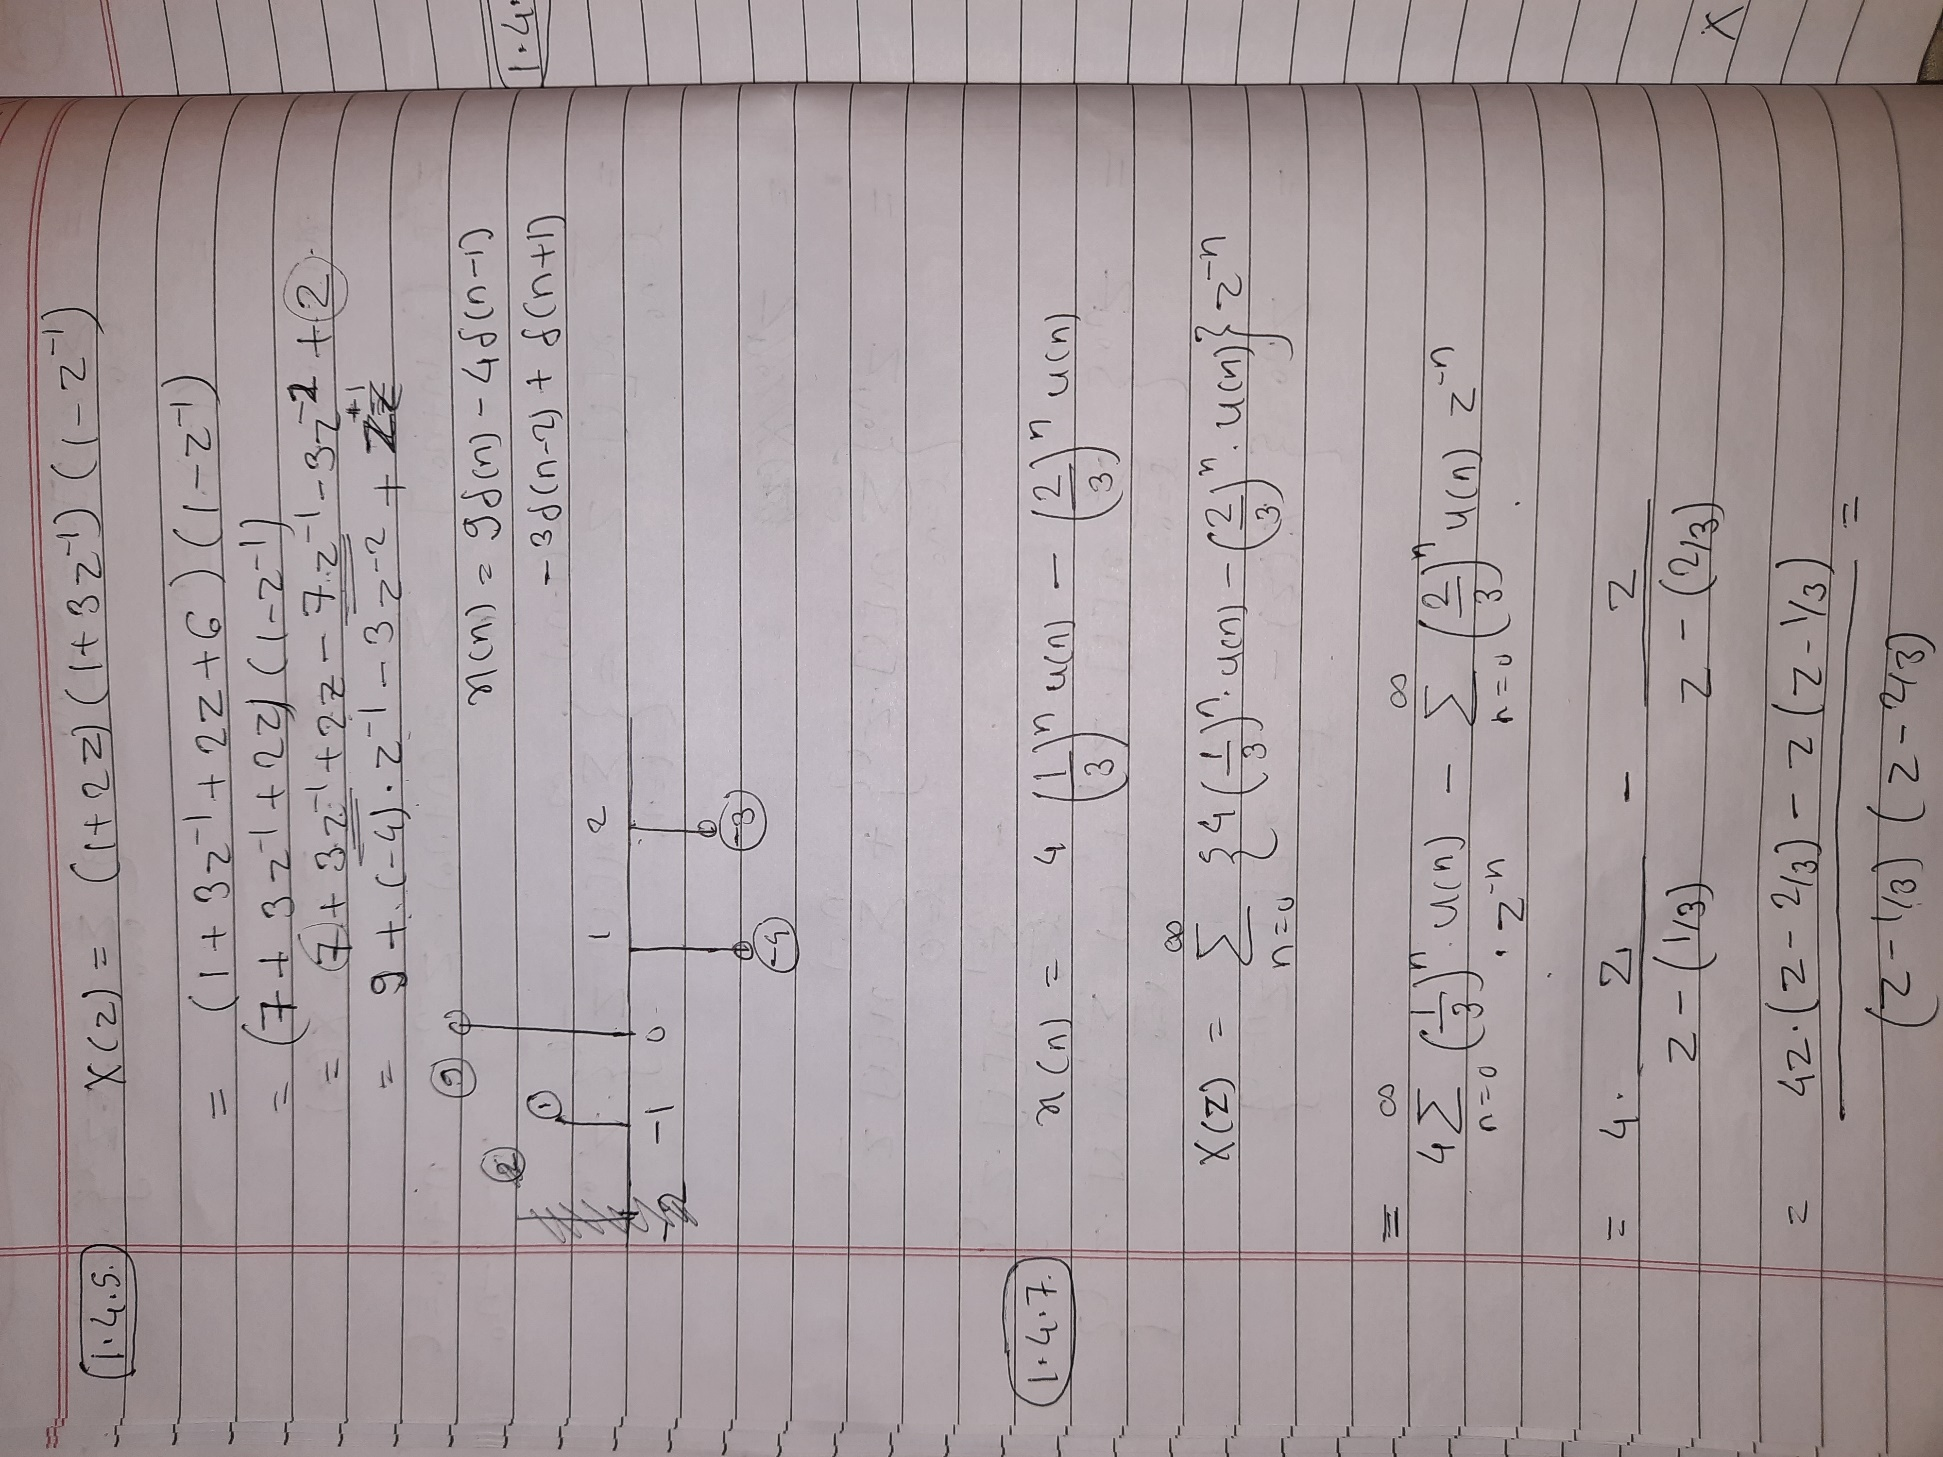 1.4.5. X(z) = (1+2z)(1+3z⁻¹)(1-z⁻¹)
= (1+3z⁻¹+2z+6)(1-z⁻¹)
= (7+3z⁻¹+2z)(1-z⁻¹)
= 7+3z⁻¹+2z-7z⁻¹-3z⁻²+2.
= 9+(-4)·z⁻¹-3z⁻²+
x(n) = 9δ(n)-4δ(n-1)
-3δ(n-2)+δ(n+1)
9
1
2
-1 0 1 2
-4 -3
1.4.7. x(n) = 4 (1/3)ⁿ u(n) - (2/3)ⁿ u(n)
X(z) = ∞∑n=0 {4(1/3)ⁿ·u(n)-(2/3)ⁿ·u(n)} z⁻ⁿ
= 4 ∞∑n=0 (1/3)ⁿ·u(n) - ∞∑n=0 (2/3)ⁿ u(n) z⁻ⁿ
· z⁻ⁿ
= 4· z/(z-(1/3)) - z/(z-(2/3))
= 4z·(z-2/3)-z(z-1/3) =
(z-1/3)(z-2/3)
1.4.
X